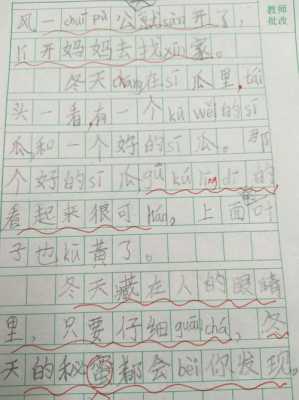 教师
批改
风一chuī pú公英sàn开了,
lí开妈妈去找xīn家。
冬天cáng在sī瓜里,tái
头一看,有一个kū wěi的sī
瓜,和一个好的sī瓜。那
个好的sī瓜gū líng dīng的
看起来很可lián,上面叶
子也kū黄了。
冬天藏在人的眼睛
里,只要仔细guān chá,冬
天的秘密都会bèi你发现。